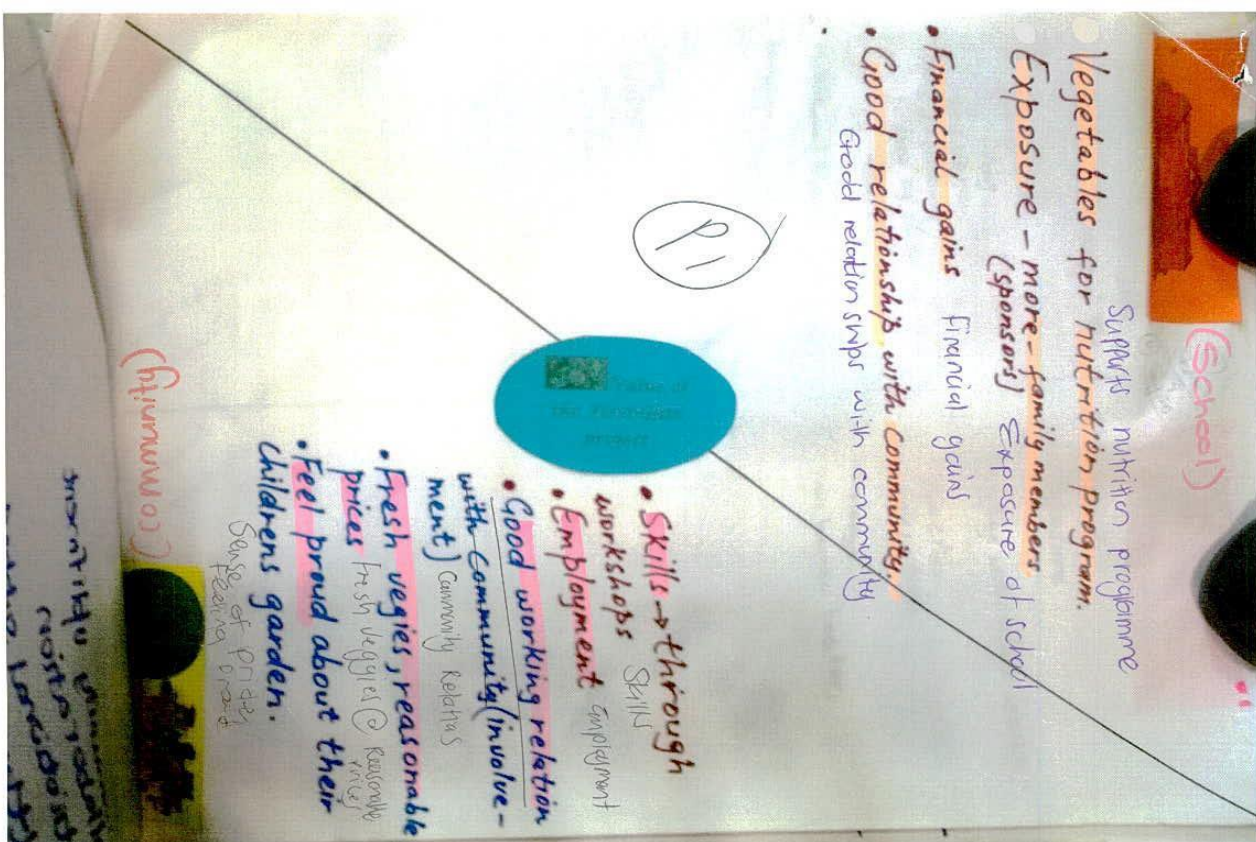 (School)
Supports nutrition programme
• Vegetables for nutrition program.
• Exposure - more - family members.
(sponsors) Exposure of school
• Financial gains financial gains
• Good relationship with community.
Good relationships with community
P1
Value of
the
project
• Skills → through
workshops Skill
• Employment Employment
• Good working relation
with community (involve-
ment) Community Relations
• Fresh vegies, reasonable
prices fresh veggies @ Reasonable
prices
• Feel proud about their
childrens garden.
Sense of pride,
feeling proud
(community)